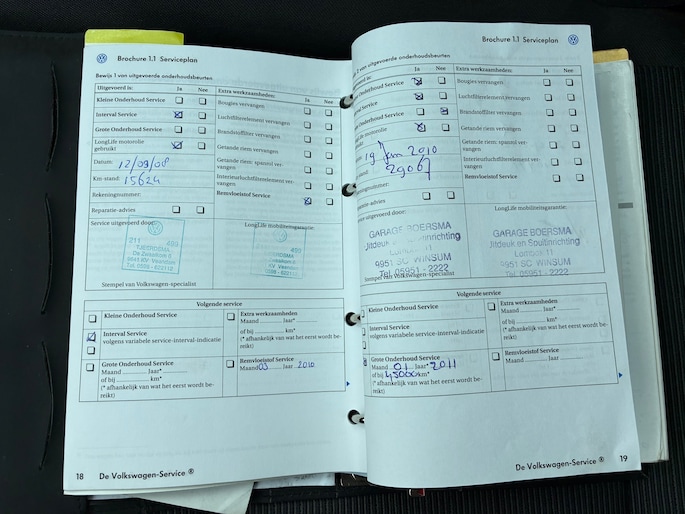 Brochure 1.1 Serviceplan
Bewijs 1 van uitgevoerde onderhoudsbeurten
Uitgevoerd is: Ja Nee
Kleine Onderhoud Service
Interval Service
Grote Onderhoud Service
LongLife motorolie
gebruikt
Datum: 12/09/08
Km-stand: 15624
Rekeningnummer:
Reparatie-advies
Extra werkzaamheden: Ja Nee
Bougies vervangen
Luchtfilterelement vervangen
Brandstoffilter vervangen
Getande riem vervangen
Getande riem: spanrol ver-
vangen
Interieurluchtfilterelement ver-
vangen
Remvloeistof Service
Service uitgevoerd door:
211 493
TJEERDSMA
De Zwaaikom 5
9641 KV Veendam
LongLife mobiliteitsgarantie:
Stempel van Volkswagen-specialist
Volgende service
Kleine Onderhoud Service
Interval Service
volgens variabele service-interval-indicatie
Grote Onderhoud Service
Maand Jaar*
of bij km*
(* afhankelijk van wat het eerst wordt be-
reikt)
Extra werkzaamheden
Maand Jaar*
of bij km*
(* afhankelijk van wat het eerst wordt be-
reikt)
Remvloeistof Service
Maand 03 Jaar 2010
18 De Volkswagen-Service ®
Brochure 1.1 Serviceplan
van uitgevoerde onderhoudsbeurten
is: Ja Nee
Service
Service
motorolie
19 Jan 2010
29067
nummer:
Extra werkzaamheden: Ja Nee
Bougies vervangen
Luchtfilterelement vervangen
Brandstoffilter vervangen
Getande riem vervangen
Getande riem: spanrol ver-
vangen
Interieurluchtfilterelement ver-
vangen
Remvloeistof Service
uitgevoerd door:
GARAGE BOERSMA
9951 SC WINSUM
Tel. 05951 - 2222
Stempel van Volkswagen-specialist
LongLife mobiliteitsgarantie:
GARAGE BOERSMA
9951 SC WINSUM
Tel. 05951 - 2222
Volgende service
Kleine Onderhoud Service
Interval Service
volgens variabele service-interval-indicatie
Grote Onderhoud Service
Maand 01 Jaar* 2011
of bij 45000 km*
(* afhankelijk van wat het eerst wordt be-
reikt)
Extra werkzaamheden
Maand Jaar*
of bij km*
(* afhankelijk van wat het eerst wordt be-
reikt)
Remvloeistof Service
Maand Jaar
De Volkswagen-Service ® 19